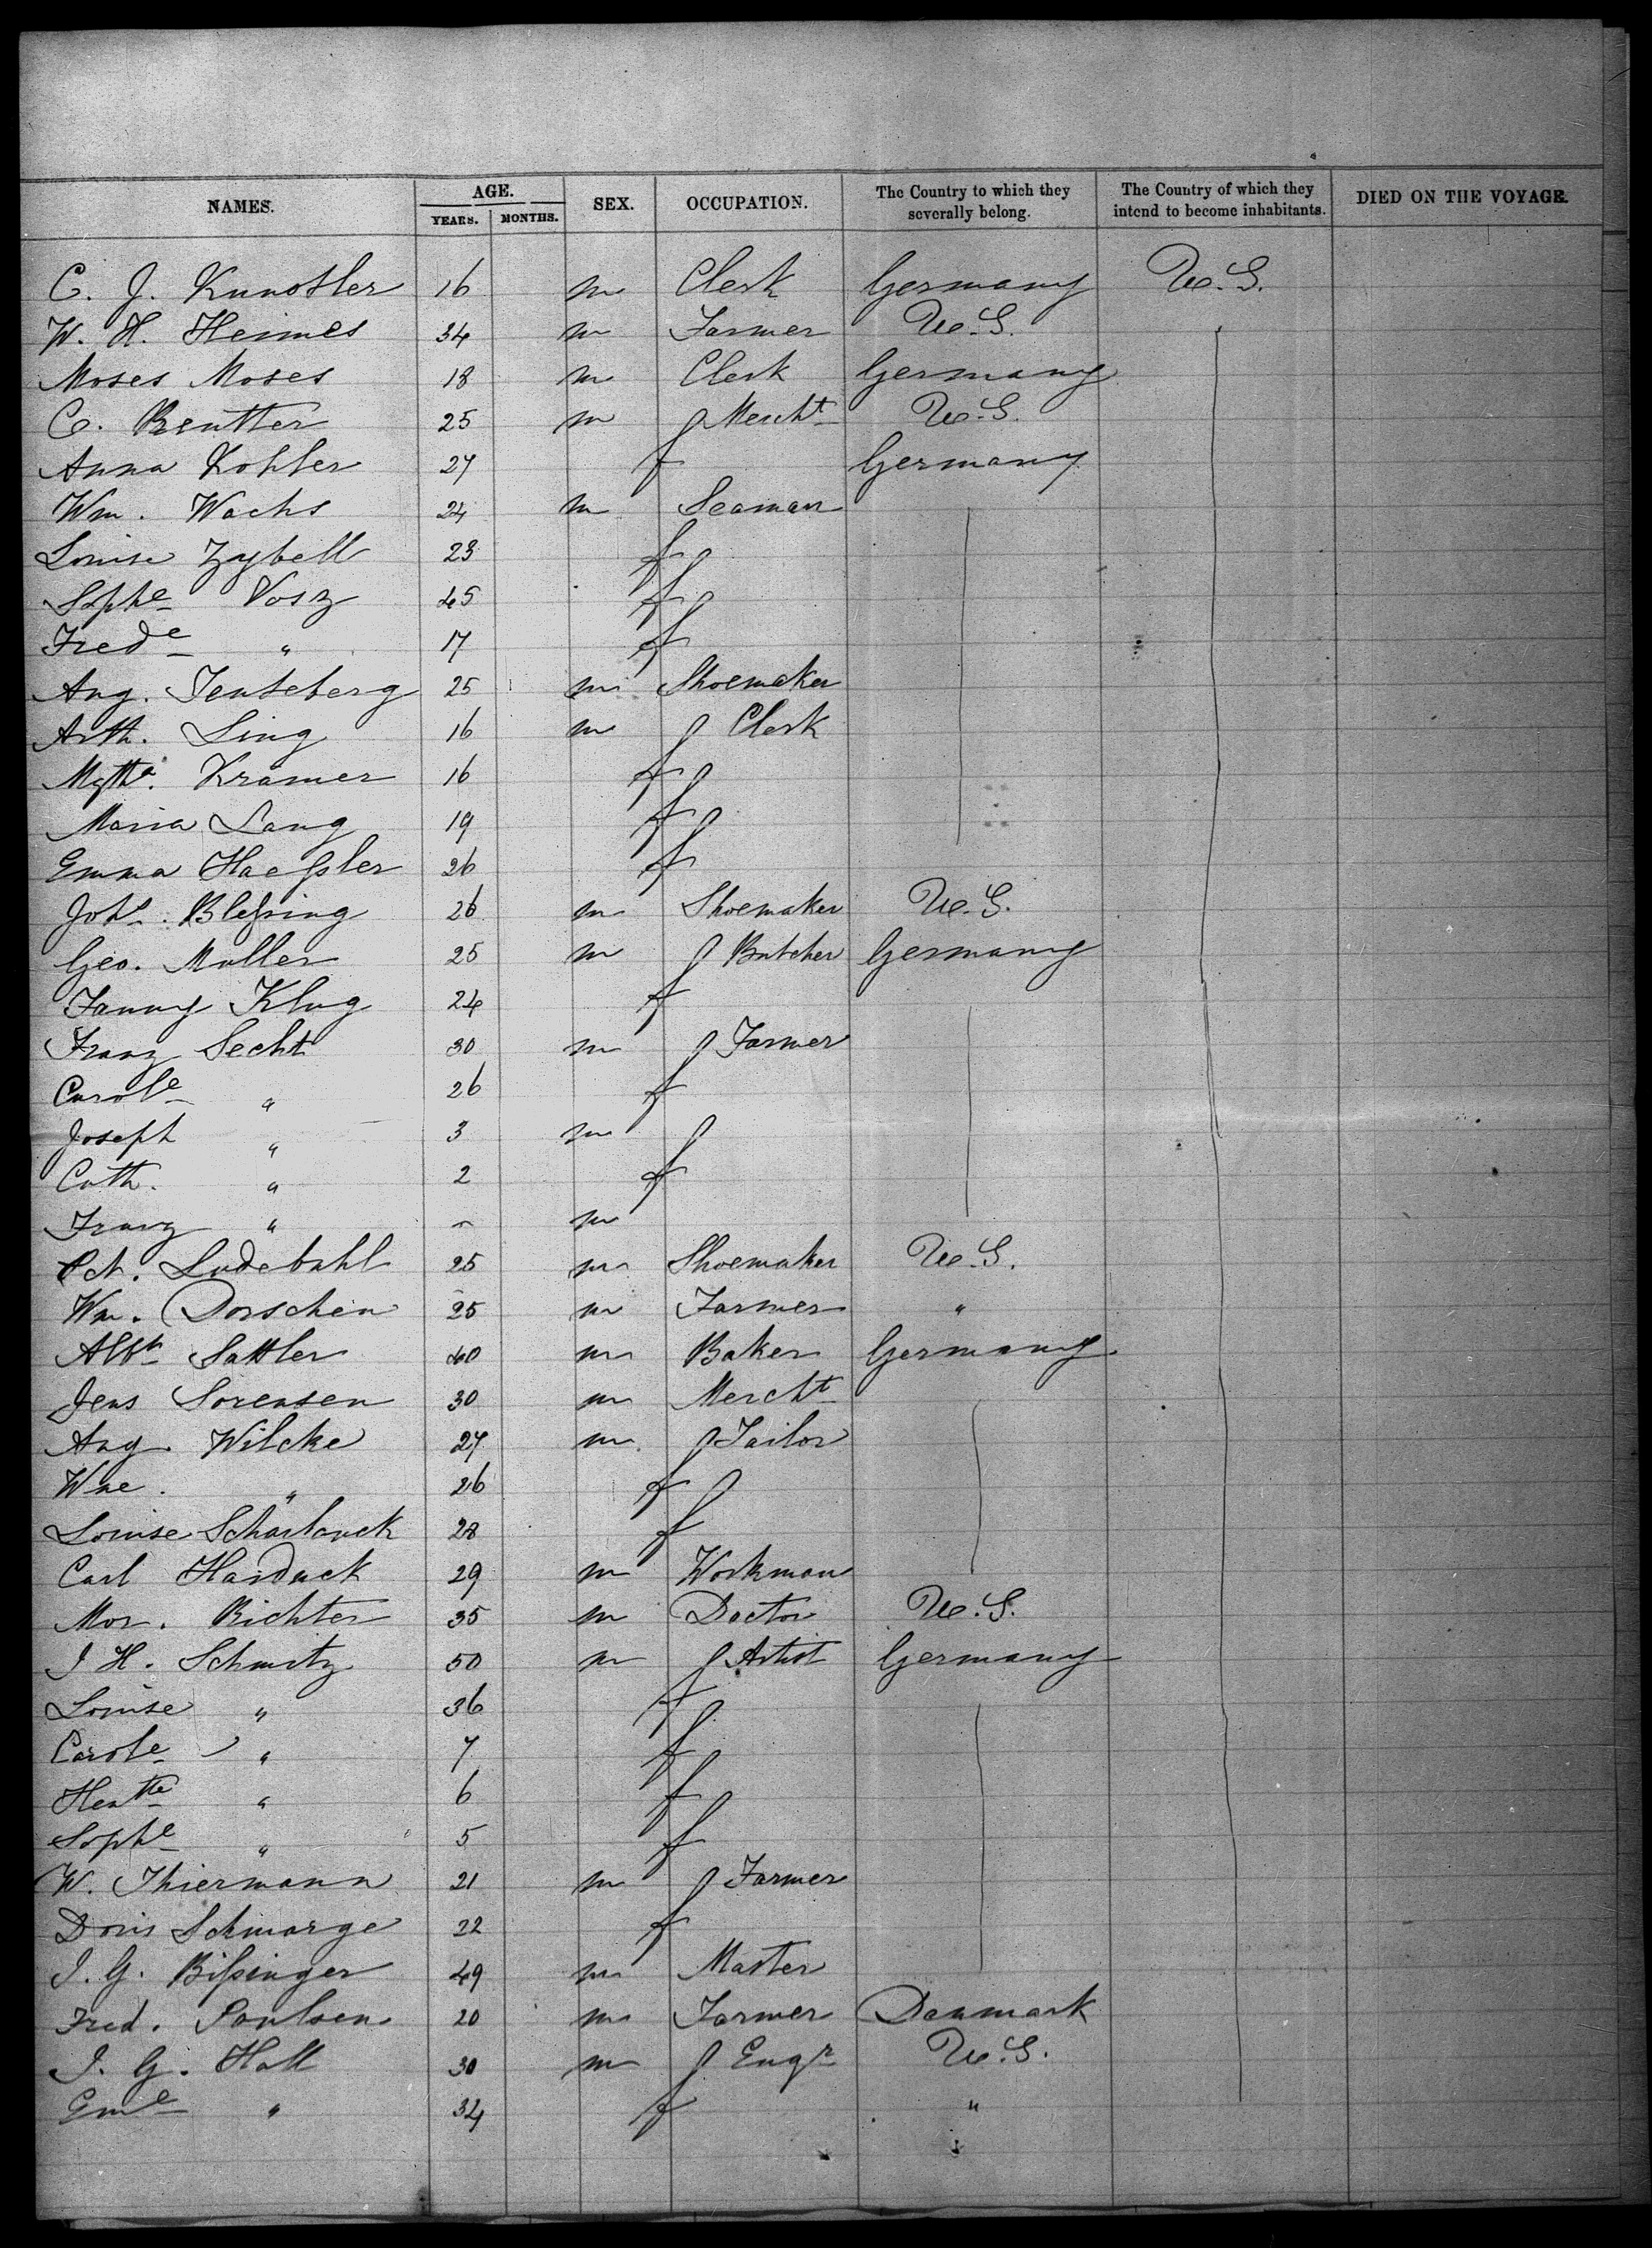 NAMES. AGE. SEX. OCCUPATION. The Country to which they severally belong. The Country of which they intend to become inhabitants. DIED ON THE VOYAGE.
YEARS. MONTHS.
C. J. Kunstler 16 m Clerk Germany U.S.
W. H. Heimes 34 m Farmer U.S.
Moses Moses 18 m Clerk Germany
C. Reutter 25 m Mercht U.S.
Anna Kohler 27 f Germany
Wm. Wachs 24 m Seaman
Louise Zybell 23 f
Sophe Vosz 45 f
Frede " 17 f
Aug. Jentseberg 25 m Shoemaker
Arth. Ling 16 m Clerk
Mgtha. Kramer 16 f
Maria Lang 19 f
Emma Haeßler 26 f
Johs. Bleßing 26 m Shoemaker U.S.
Geo. Muller 25 m Butcher Germany
Fanny Klug 24 f
Franz Secht 30 m Farmer
Carole " 26 f
Joseph " 3 m
Cath. " 2 f
Franz " ~ m
Pet. Ludebuhl 25 m Shoemaker U.S.
Wm. Dorschen 25 m Farmer "
Albt Sattler 40 m Baker Germany
Jens Sorensen 30 m Mercht
Aug. Wilcke 27 m Tailor
Wme. " 26 f
Louise Scharlauck 28 f
Carl Harduck 29 m Workman
Mor. Richter 35 m Doctor U.S.
J H. Schmitz 50 m Artist Germany
Louise " 36 f
Carole " 7 f
Hentte " 6 f
Sophe " 5 f
W. Thiermann 21 m Farmer
Doris Schwarge 22 f
J. G. Bißinger 49 m Master
Fred. Poulsen 20 m Farmer Danmark
J. G. Hall 30 m Engr U.S.
Eme " 34 f "